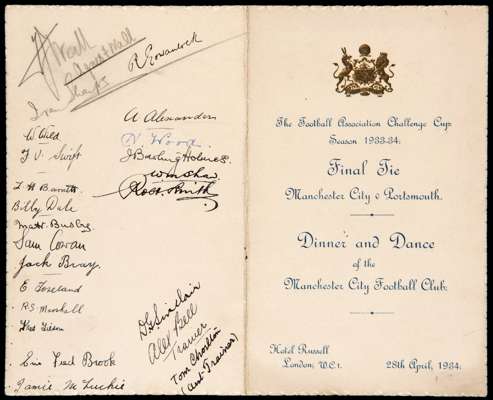 Wall
R Rowanlock
Ivan Sharpe
A Alexander
W Wild
N Wood
F V. Swift
J Bowling Holmes
Wm Shaw
Robt Smith
L H Barnett
Billy Dale
Matt. Busby
Sam Cowan
Jack Bray
E Toseland
R.S. Marshall
Fred Tilson
Eric Fred Brook
Jamie M Luckie
D G Sinclair
Alex Bell
Trainer
Tom Chorlton
(Asst Trainer)
The Football Association Challenge Cup
Season 1933-34:
Final Tie
Manchester City v Portsmouth
Dinner and Dance
of the
Manchester City Football Club
Hotel Russell
London, W.C.1.
28th April, 1934: